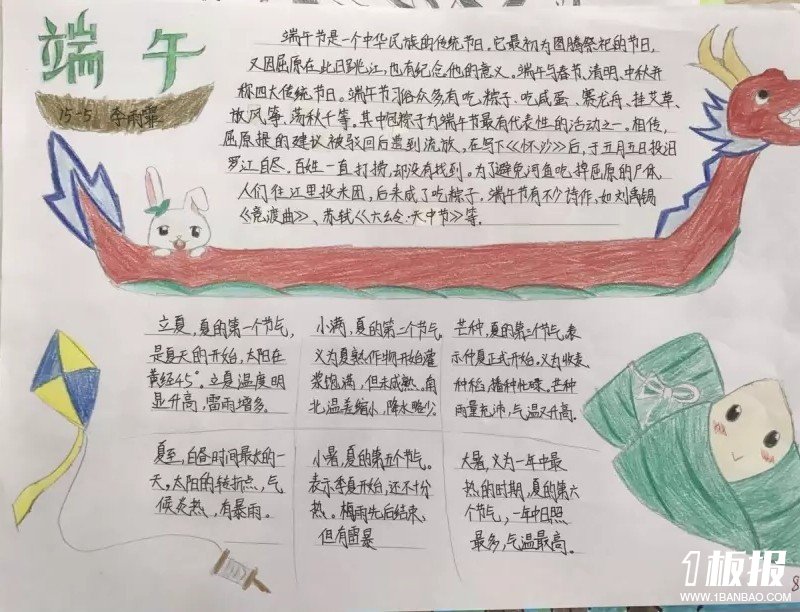 端午
15-5 李雨霏
端午节是一个中华民族的传统节日。它最初为图腾祭祀的节日,
又因屈原在此日跳江,也有纪念他的意义。端午与春节、清明、中秋并
称四大传统节日。端午节习俗众多有吃粽子、吃咸蛋、赛龙舟、挂艾草、
放风筝、荡秋千等。其中同粽子为端午节最有代表性的活动之一。相传,
屈原提的建议被驳回后遭到流放,在写下《怀沙》后,于五月五日投汨
罗江自尽。百姓一直打捞,却没有找到。为了避免河鱼吃掉屈原的尸体,
人们往江里投米团,后来成了吃粽子。端午节有不少诗作,如刘禹锡
《竞渡曲》、苏轼《六幺令·天中节》等。
立夏,夏的第一个节气,
是夏天的开始,太阳在
黄经45°。立夏温度明
显升高,雷雨增多。
小满,夏的第二个节气。
义为夏熟作物开始灌
浆饱满,但未成熟。南
北温差缩小,降水略少。
芒种,夏的第三个节气,表
示仲夏正式开始。义为收麦
种稻,播种忙碌。芒种
雨量充沛,气温又升高。
夏至,白昼时间最长的一
天。太阳的转折点,气
候炎热,有暴雨。
小暑,夏的第五个节气。
表示季夏开始,还不十分
热。梅雨先后结束,
但有雷暴
大暑,义为一年中最
热的时期,夏的第六
个节气,一年中日照
最多,气温最高。
1板报
WWW.1BANBAO.COM
8